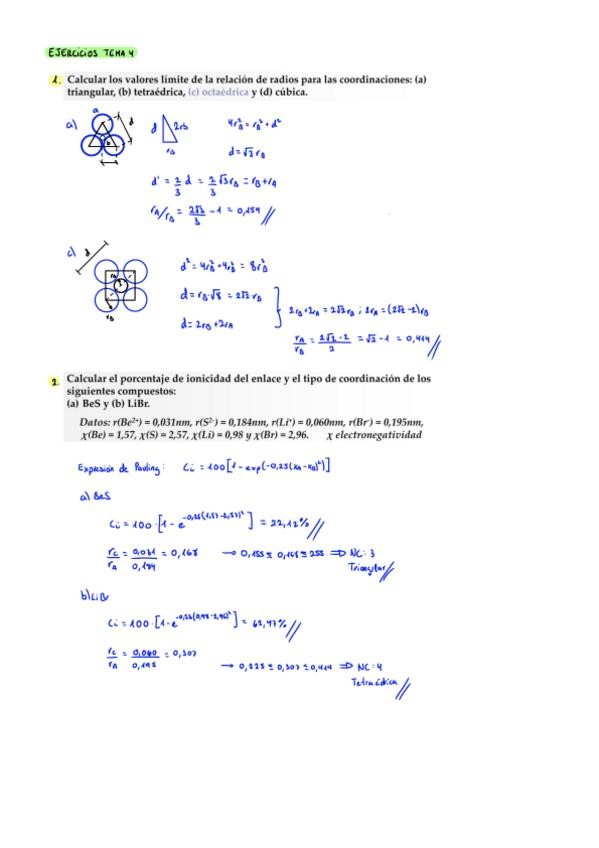 EJERCICIOS TEMA 4
1. Calcular los valores límite de la relación de radios para las coordinaciones: (a)
triangular, (b) tetraédrica, (c) octaédrica y (d) cúbica.
a)
a
d
d 2rB
rB
4rB² = rB² + d²
d = √3 rB
d' = 2/3 d = 2/3 √3 rB = rB + rA
rA/rB = 2√3/3 - 1 = 0,154 //
c)
d
rA
rB
d² = 4rB² + 4rB² = 8rB²
d = rB·√8 = 2√2 rB
d = 2rB + 2rA
2rB + 2rA = 2√2 rB ; 2rA = (2√2 - 2) rB
rA/rB = 2√2 - 2/2 = √2 - 1 = 0,414 //
2. Calcular el porcentaje de ionicidad del enlace y el tipo de coordinación de los
siguientes compuestos:
(a) BeS y (b) LiBr.
Datos: r(Be²⁺) = 0,031nm, r(S²⁻) = 0,184nm, r(Li⁺) = 0,060nm, r(Br⁻) = 0,195nm,
χ(Be) = 1,57, χ(S) = 2,57, χ(Li) = 0,98 y χ(Br) = 2,96. χ electronegatividad
Expresión de Pauling: Ci = 100 [1 - exp(-0,25(xA - xB)²)]
a) BeS
Ci = 100 · [1 - e^(-0,25(1,57-2,57)²)] = 22,12% //
rC/rA = 0,031/0,184 = 0,168 → 0,155 ≤ 0,168 ≤ 255 ⇒ NC: 3
Triangular //
b) LiBr
Ci = 100 · [1 - e^(-0,25(0,98-2,96)²)] = 62,47% //
rC/rA = 0,060/0,195 = 0,307 → 0,225 ≤ 0,307 ≤ 0,414 ⇒ NC: 4
Tetraédrica //